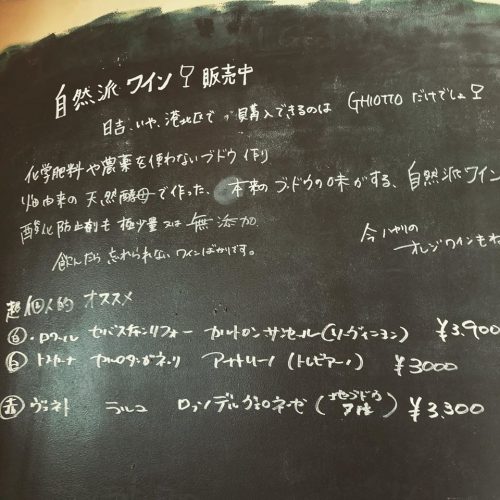 自然派ワイン 販売中
日吉、いや、港北区で購入できるのは GHIOTTO だけでしょ
化学肥料や農薬を使わないブドウ作り
畑由来の天然酵母で作った、本来のブドウの味がする、自然派ワイン
酸化防止剤も極少量又は無添加
飲んだら忘れられないワインばかりです。
今ハヤリの
オレンジワインもそ
超個人的オススメ
白・ロワール セバスチャンリフォー カルトロンサンセール(ソーヴィニヨン) ¥3,900
白 トスカーナ カルロタンガネッリ アナトリーノ(トレビアーノ) ¥3000
赤 ヴェネト ラルコ ロッソデルヴェロネーゼ(地ブドウ7種) ¥3,300